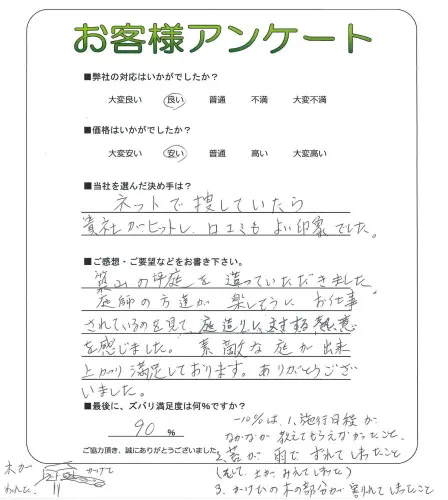 お客様アンケート
■弊社の対応はいかがでしたか？
大変良い 良い 普通 不満 大変不満
■価格はいかがでしたか？
大変安い 安い 普通 高い 大変高い
■当社を選んだ決め手は？
ネットで捜していたら
貴社がヒットし、口コミもよい印象でした。
■ご感想・ご要望などをお書き下さい。
築山の坪庭を造っていただきました。
庭師の方達が楽しそうにお仕事
されているのを見て、庭造りに対する熱意
を感じました。素敵な庭が出来
上がり満足しております。ありがとうござい
いました。
■最後に、ズバリ満足度は何%ですか？
90 %
ご協力頂き、誠にありがとうございました
-10%は、1、施行日程が
なかなか教えてもらえなかったこと、
2、苔が雨でずれてしまったこと
土がみえてしまった)
3、かけひの木の部分が割れてしまったこと
木が
われた
かけて